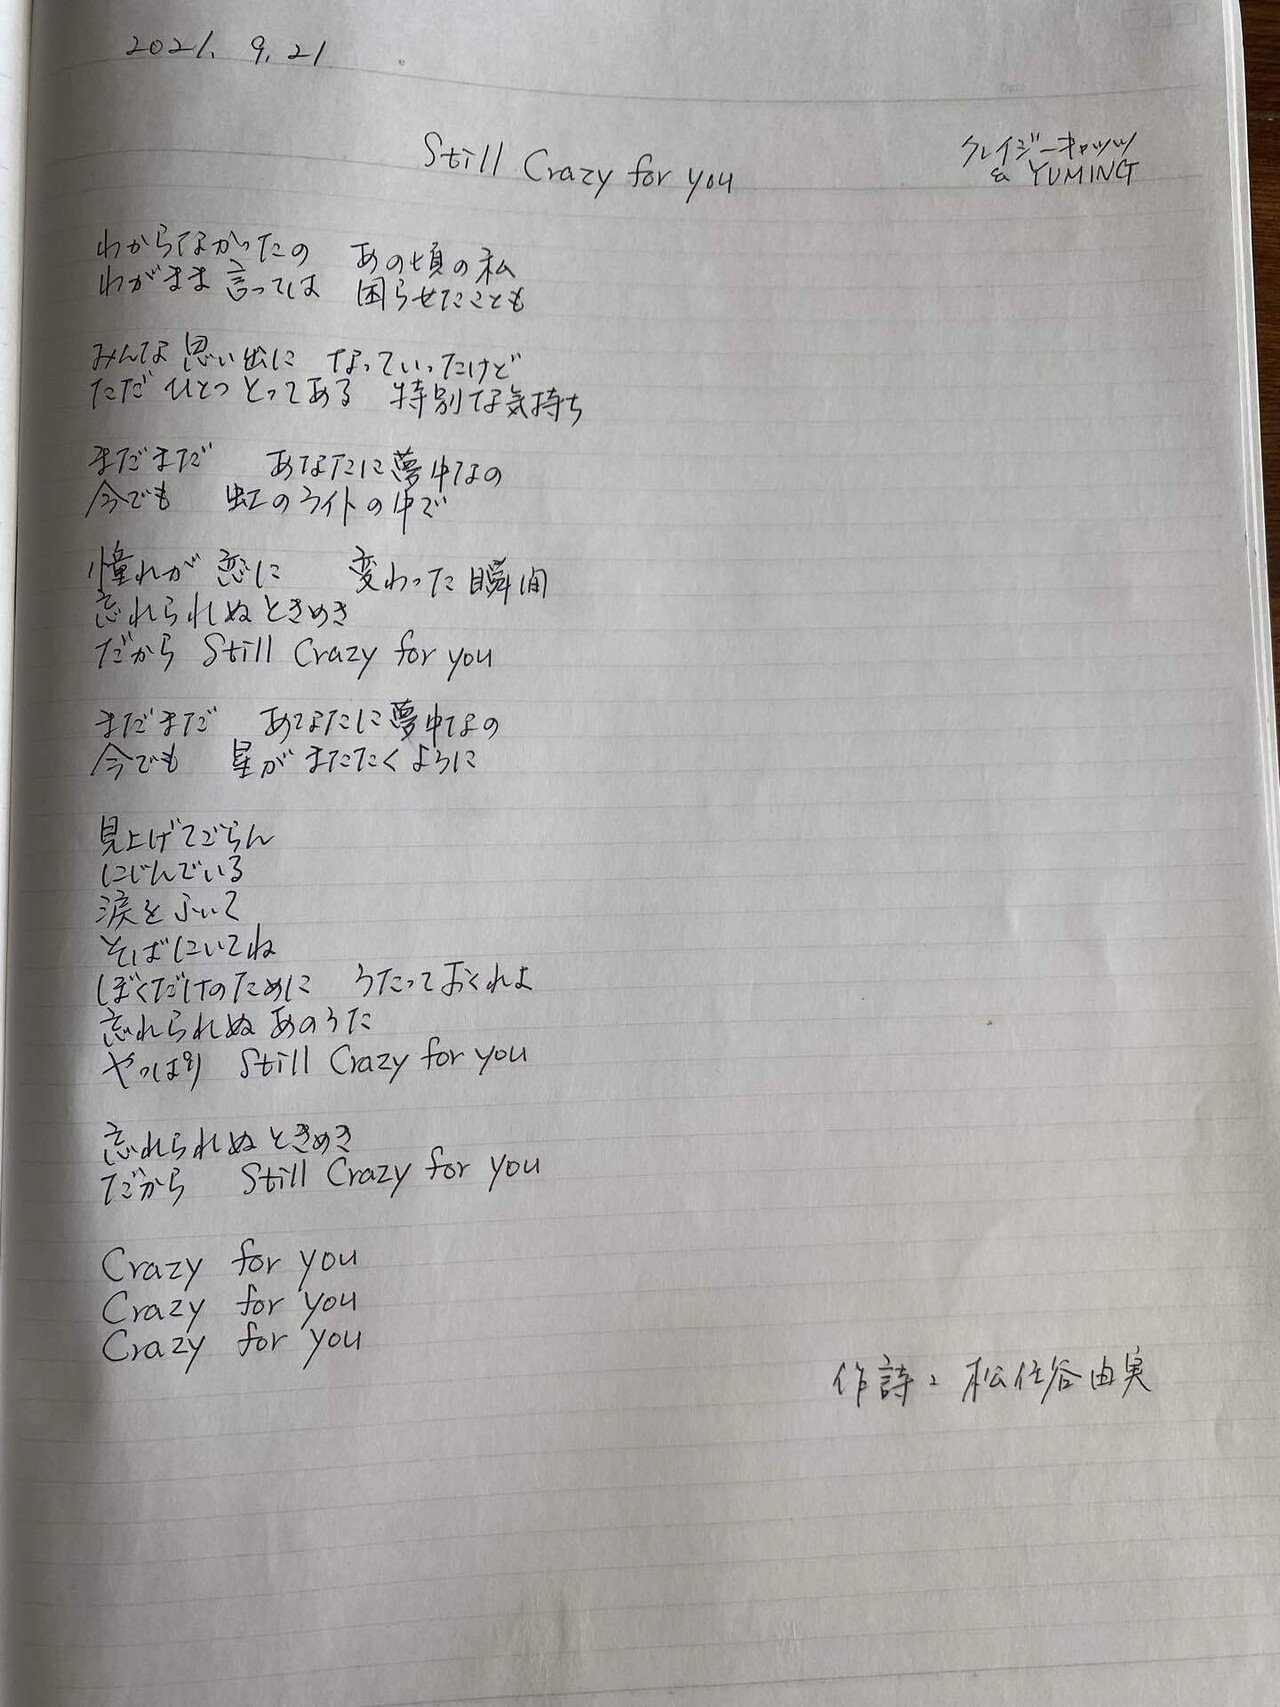 2021. 9. 21
Still Crazy for you
クレイジーキャッツ
& YUMING
わからなかったの あの頃の私
わがまま言っては 困らせたことも
みんな思い出に なっていったけど
ただひとつとってある 特別な気持ち
まだまだ あなたに夢中なの
今でも 虹のライトの中で
憧れが恋に 変わった瞬間
忘れられぬときめき
だから Still Crazy for you
まだまだ あなたに夢中なの
今でも 星がまたたくように
見上げてごらん
にじんでいる
涙をふいて
そばにいてね
ぼくだけのために うたっておくれよ
忘れられぬあのうた
やっぱり Still Crazy for you
忘れられぬときめき
だから Still Crazy for you
Crazy for you
Crazy for you
Crazy for you
作詩：松任谷由実